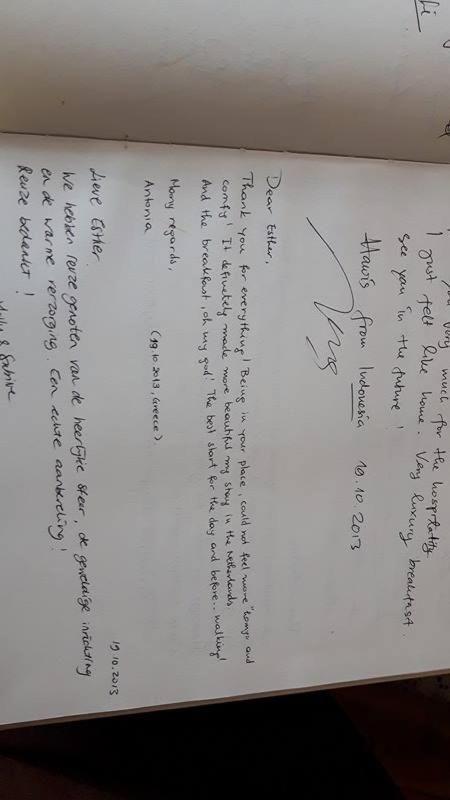 you very much for the hospitality
I just felt like home. Very luxury breakfast.
see you in the future!
Hawis from Indonesia 19.10.2013
Dear Esther,
Thank you for everything! Being in your place, could not feel more "homy" and
comfy! It definetely made more beautiful my stay in the Netherlands.
And the breakfast, oh my god! The best start for the day and before.. walking!
Many regards,
Antonia (19.10.2013, Greece)
19.10.2013
Lieve Esther.
We hebben reuze genoten van de heerlijke sfeer, de geweldige inrichting
en de warme verzorging. Een echte aanbeveling!
Reuze bedankt!
& Sabine